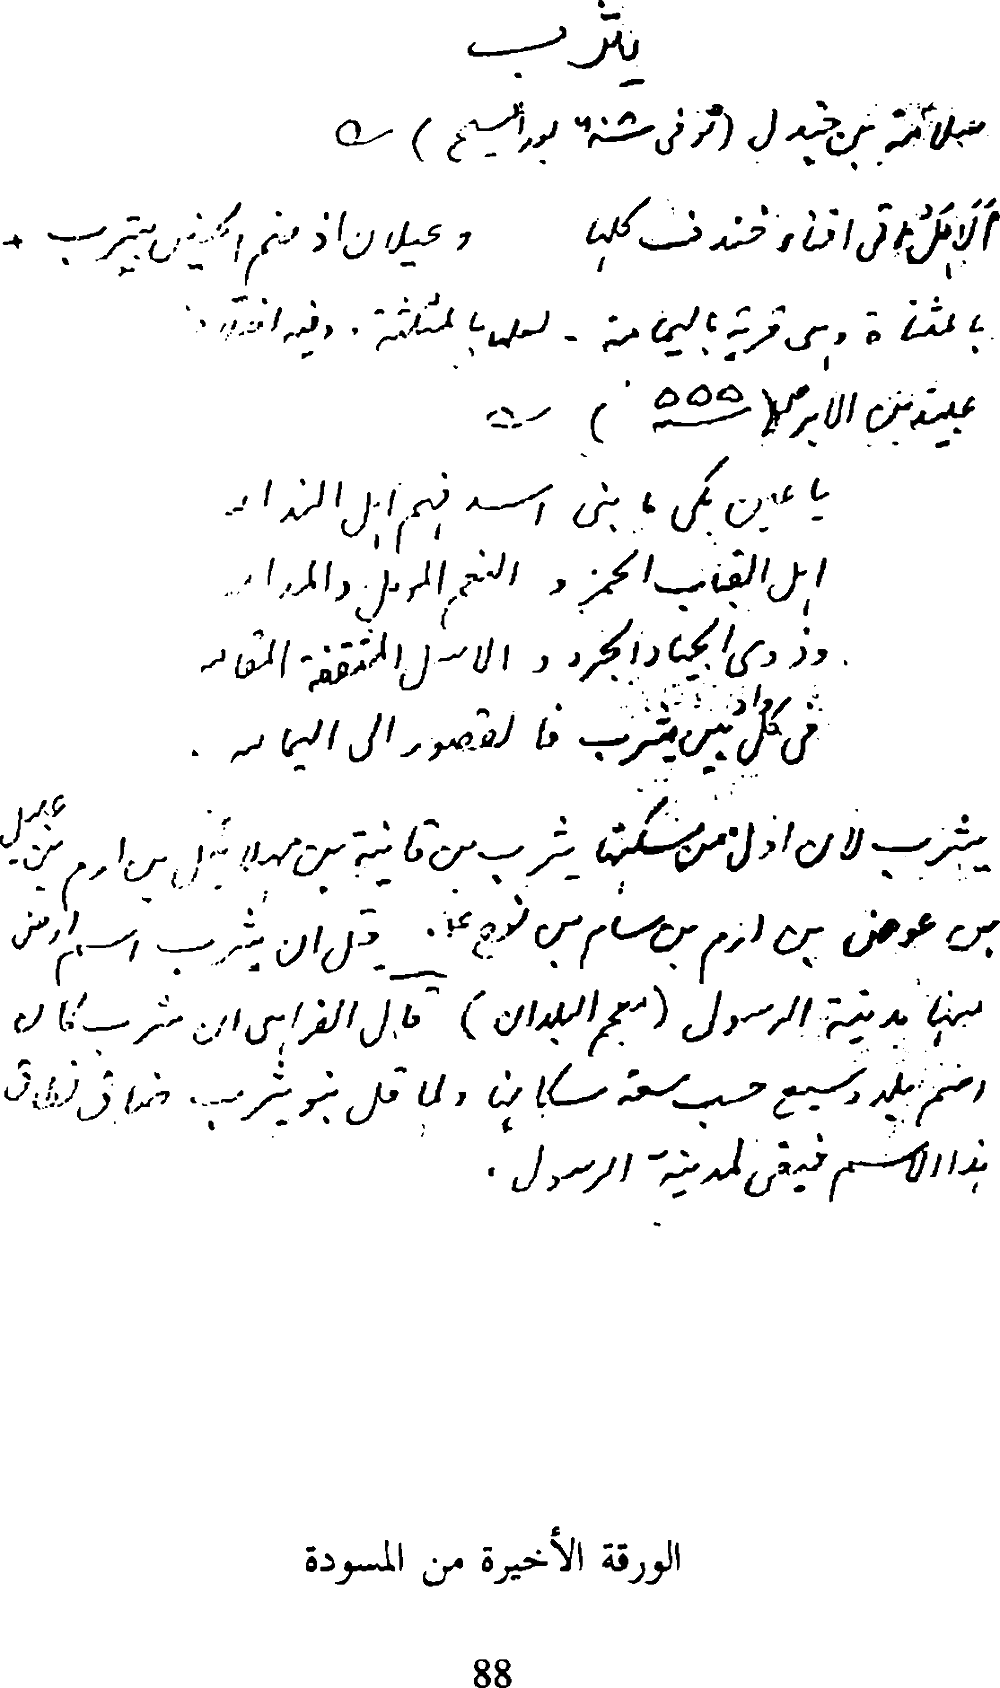 يثرب
سلامة بن جندل (توفى سنة بعد المسيح)
ألا هل أتى أفناء خندف كلها وعيلان اذ ضم الخميس بيترب +
بالمثناة وهى قرية باليمامة - لعلها بالمثلثة . وفيه اختلاف
عبيد بن الابرص (سنة ٥٥٥)
يا عين بكى ما بنى اسد فهم اهل الندامه
اهل القباب الحمر و النعم المؤبل والمدامه
وذوى الجياد الجرد و الاسل المثقفة المقامه
فى كل واد بين يثرب فالقصور الى اليمامه .
يثرب لان اول من سكنها يثرب بن قانية بن مهلائيل بن ارم بن عبيل
بن عوض بن ارم بن سام بن نوح . قيل ان يثرب اسم ارض
بها مدينة الرسول (معجم البلدان) قال الفراهى ان يثرب كان
اسم بلد وسيع حسب سعة سكانها ولما قل بنو يثرب ضاق نطاق
هذا الاسم فبقى لمدينة الرسول .
الورقة الأخيرة من المسودة
88